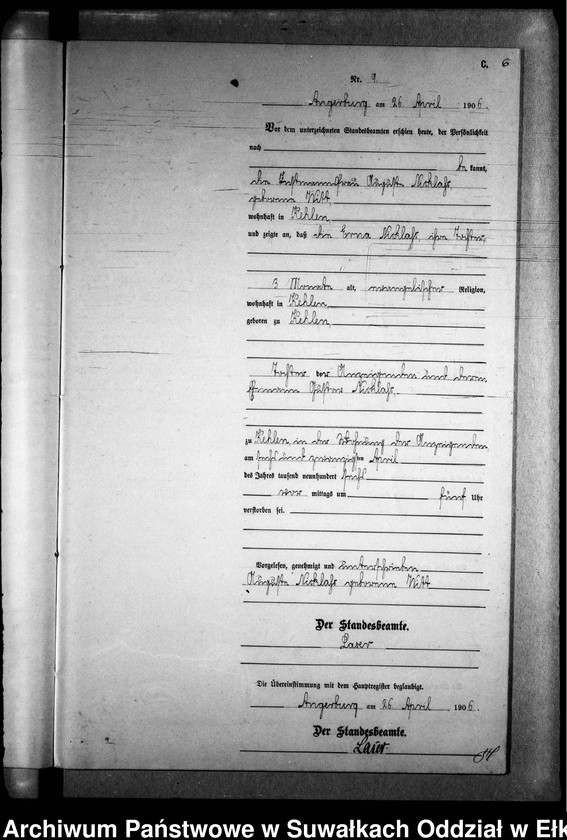 C. 6
Nr. 9.
Angerburg am 26 April 1906.
Vor dem unterzeichneten Standesbeamten erschien heute, der Persönlichkeit
nach
be kannt,
die Instmannsfrau Auguste Nicklahs,
geborene Witt,
wohnhaft in Kehlen,
und zeigte an, daß die Erna Nicklahs, ihre Tochter,
3 Monate alt, evangelischer Religion,
wohnhaft in Kehlen,
geboren zu Kehlen,
Tochter der Anzeigenden und deren
Ehemann Gustav Nicklahs,
zu Kehlen, in der Wohnung der Anzeigenden,
am sechs und zwanzigsten April
des Jahres tausend neunhundert sechs
vor mittags um fünf Uhr
verstorben sei.
Vorgelesen, genehmigt und unterschrieben
Auguste Nicklahs geborene Witt
Der Standesbeamte.
Laser
Die Übereinstimmung mit dem Hauptregister beglaubigt.
Angerburg am 26 April 1906.
Der Standesbeamte.
Laser
Archiwum Państwowe w Suwałkach Oddział w Ełk